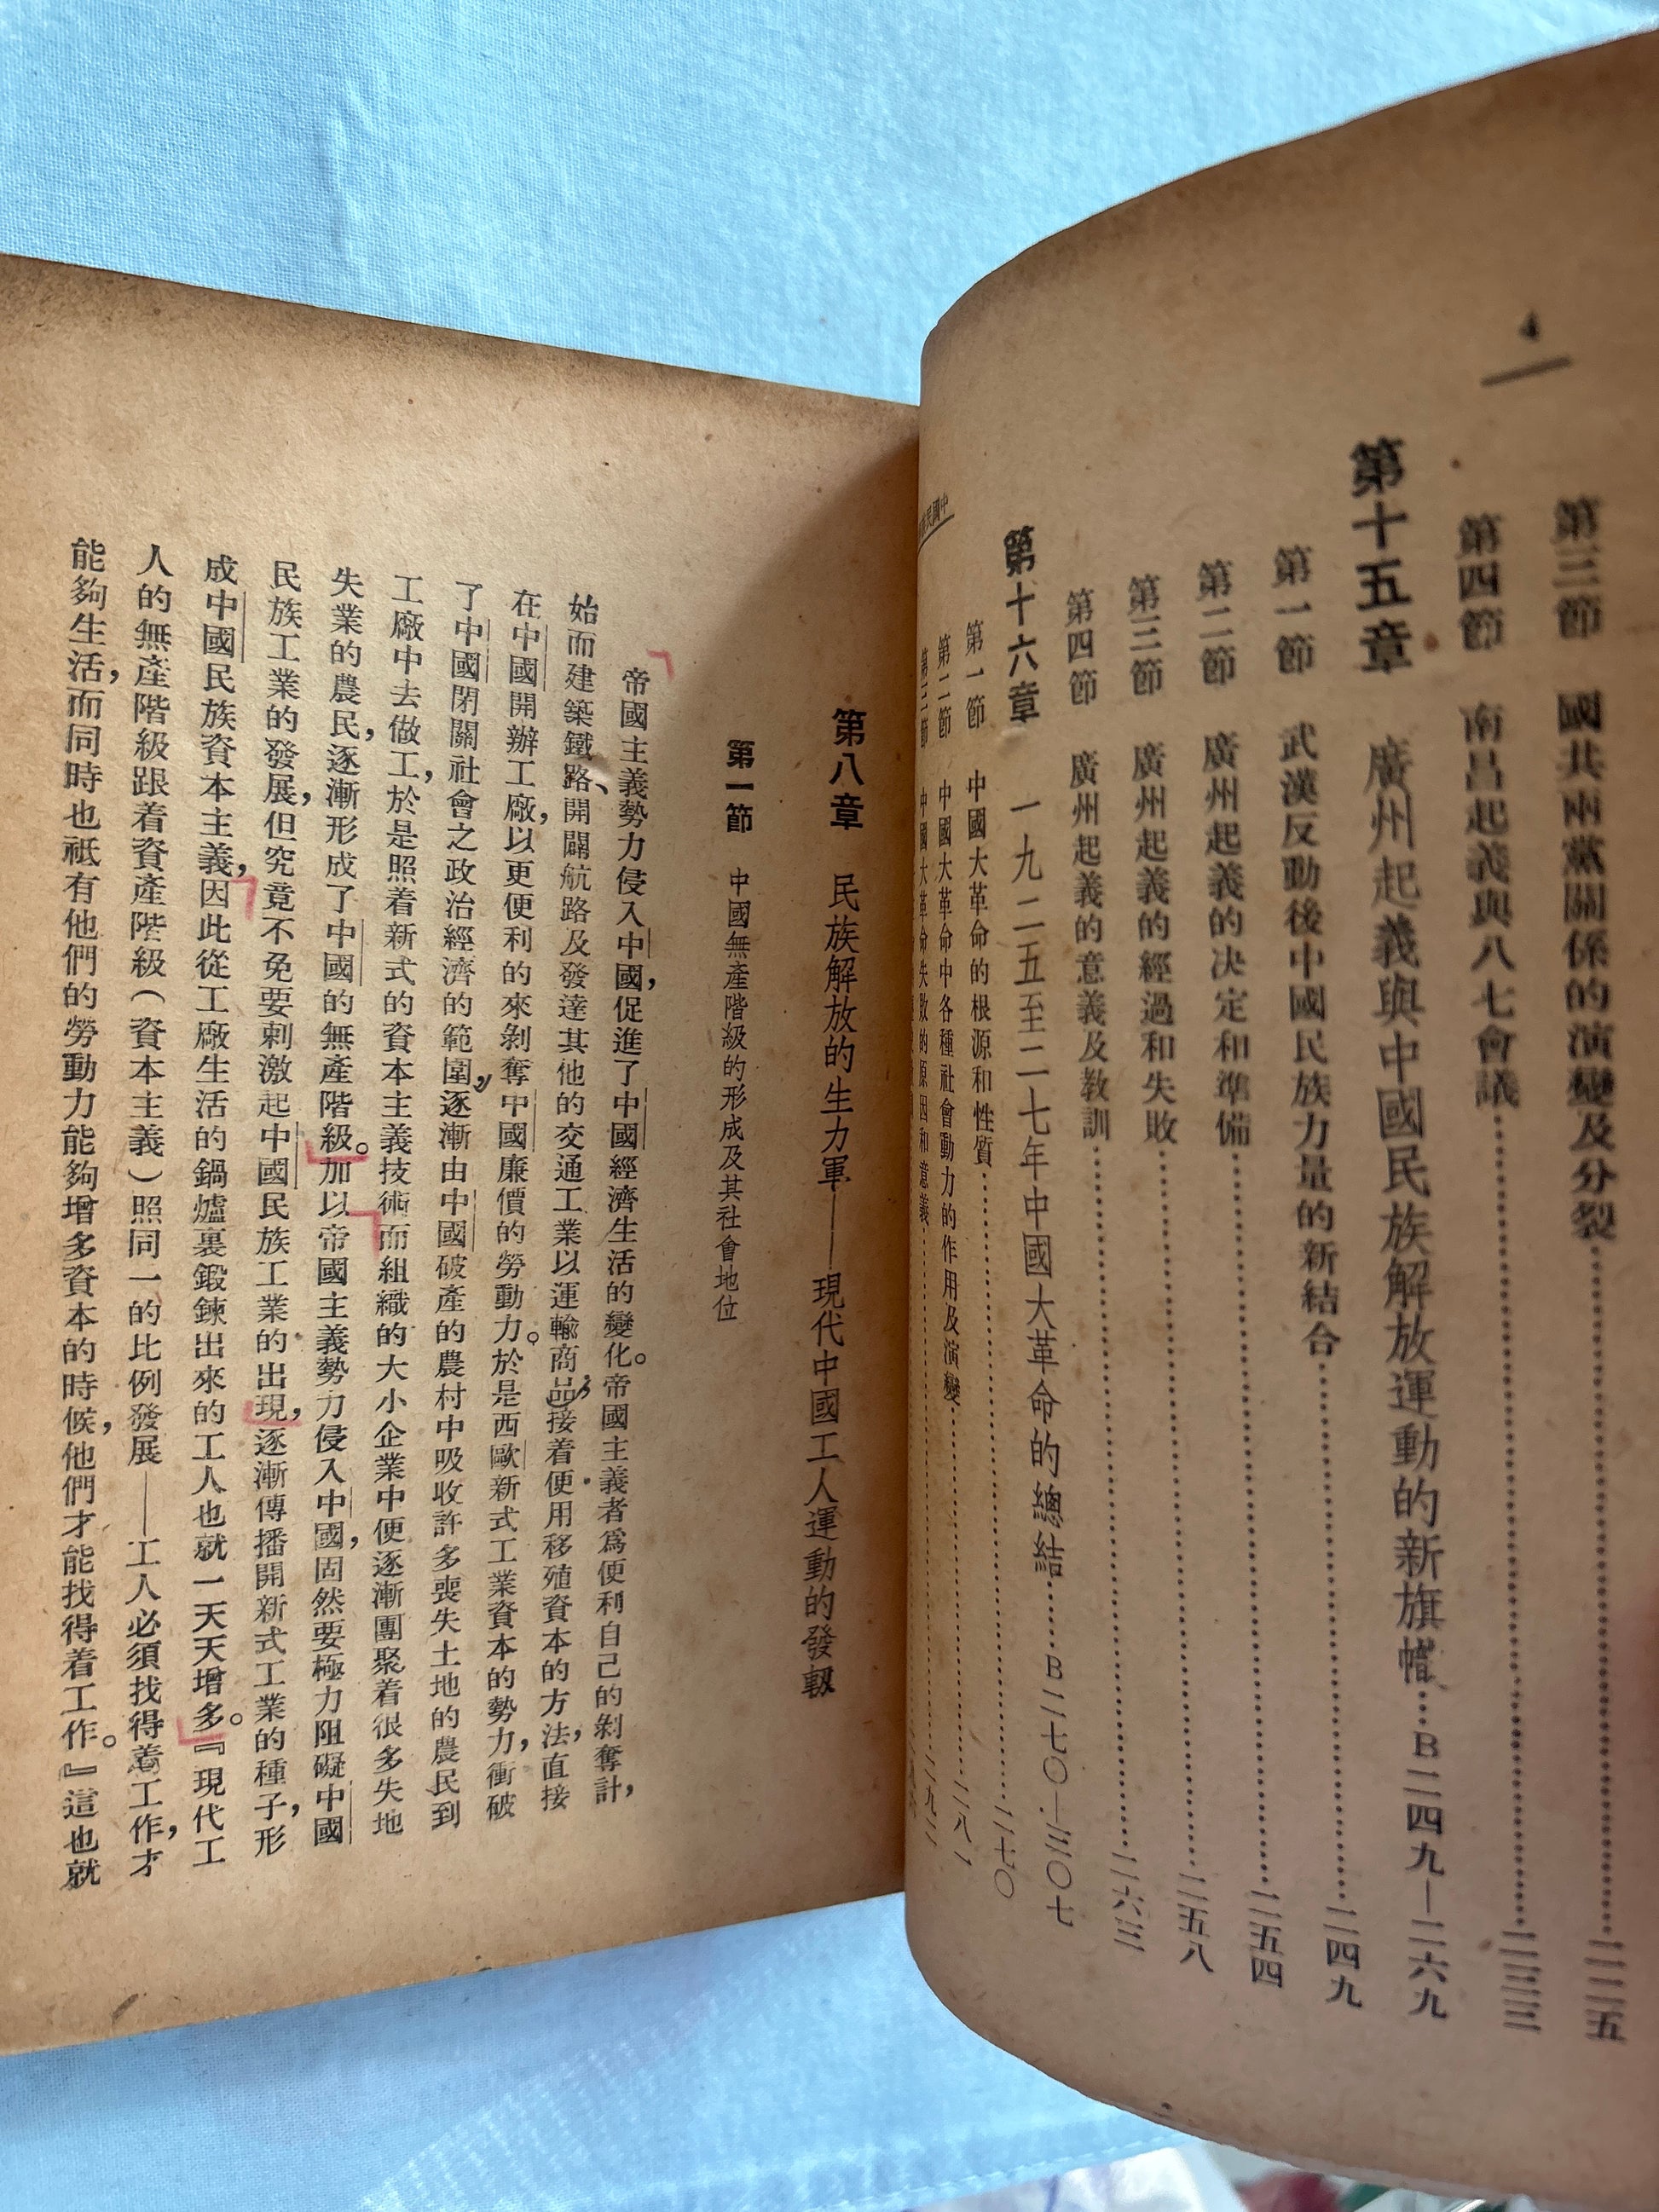 4
第三節　國共兩黨關係的演變及分裂……二二五
第四節　南昌起義與八七會議……二三三
第十五章　廣州起義與中國民族解放運動的新旗幟……B二四九—二六九
第一節　武漢反動後中國民族力量的新結合……二四九
第二節　廣州起義的決定和準備……二五四
第三節　廣州起義的經過和失敗……二五八
第四節　廣州起義的意義及教訓……二六三
第十六章　一九二五至二七年中國大革命的總結……B二七〇—三〇七
第一節　中國大革命的根源和性質……二七〇
第二節　中國大革命中各種社會動力的作用及演變……二八一
第三節　中國大革命失敗的原因和意義……二九二
第八章　民族解放的生力軍——現代中國工人運動的發軔
第一節　中國無產階級的形成及其社會地位
帝國主義勢力侵入中國，促進了中國經濟生活的變化。帝國主義者爲便利自己的剝奪計，
始而建築鐵路、開闢航路及發達其他的交通工業以運輸商品，接着便用移殖資本的方法，直接
在中國開辦工廠，以更便利的來剝奪中國廉價的勞動力。於是西歐新式工業資本的勢力，衝破
了中國閉關社會之政治經濟的範圍，逐漸由中國破產的農村中吸收許多喪失土地的農民到
工廠中去做工，於是照着新式的資本主義技術而組織的大小企業中便逐漸團聚着很多失地
失業的農民，逐漸形成了中國的無產階級。加以帝國主義勢力侵入中國，固然要極力阻礙中國
民族工業的發展，但究竟不免要刺激起中國民族工業的出現，逐漸傳播開新式工業的種子，形
成中國民族資本主義，因此從工廠生活的鍋爐裏鍛鍊出來的工人也就一天天增多。『現代工
人的無產階級跟着資產階級（資本主義）照同一的比例發展——工人必須找得着工作，才
能夠生活，而同時也祇有他們的勞動力能夠增多資本的時候，他們才能找得着工作。』這也就